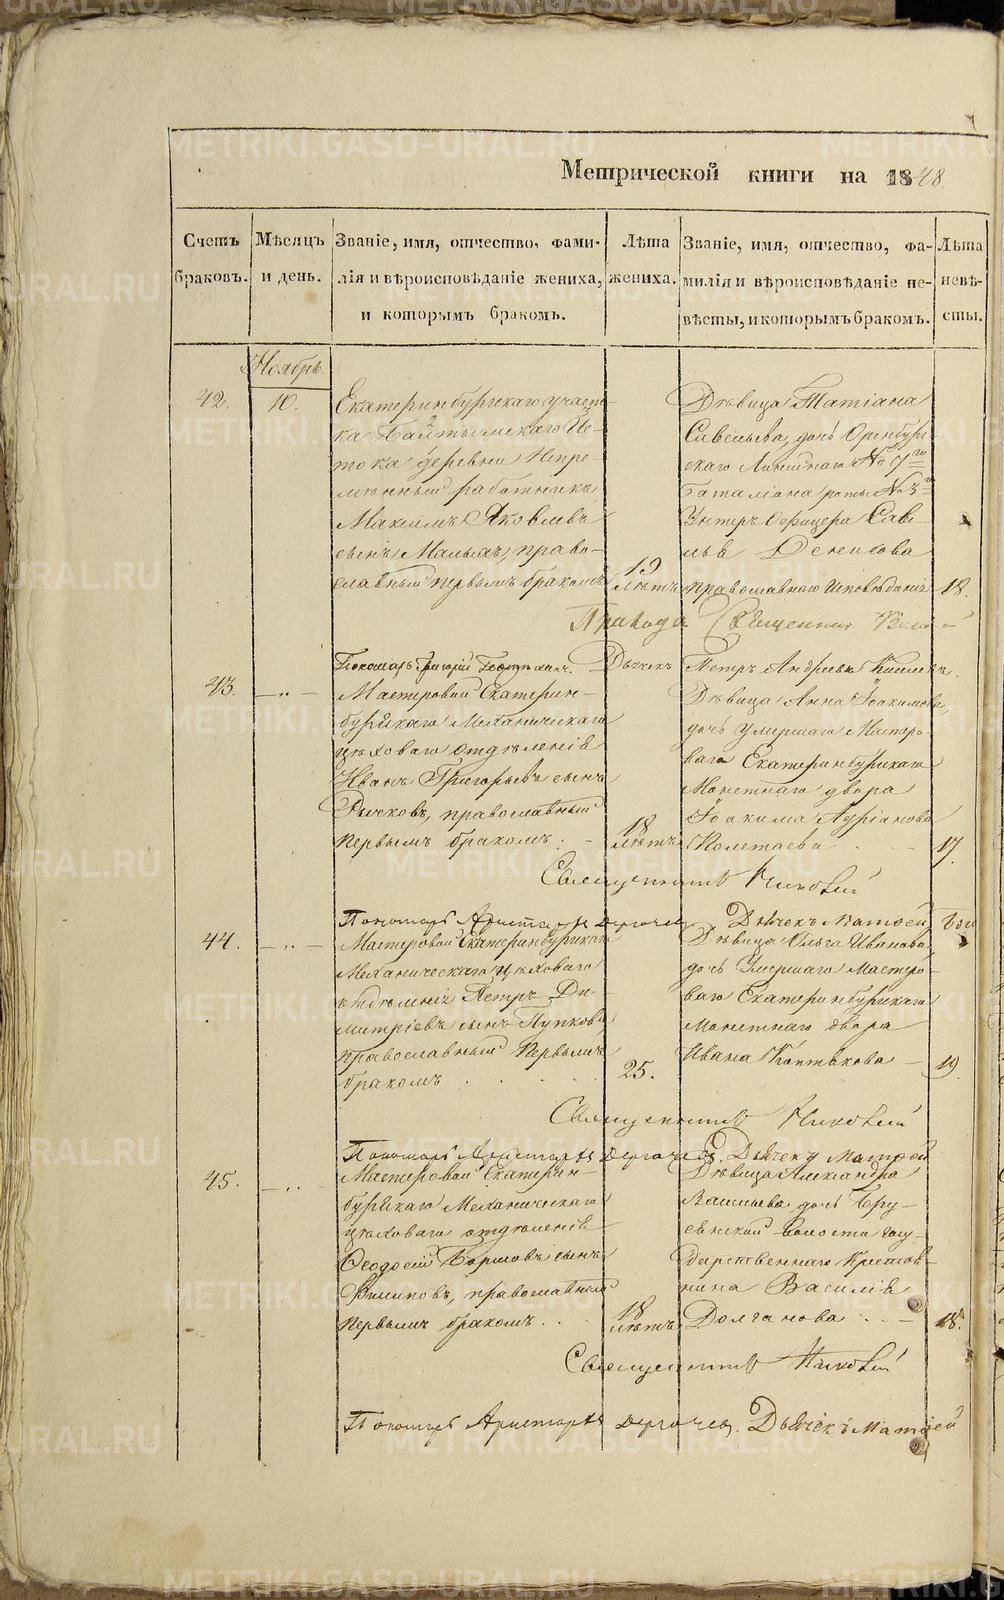 METRIKI.GASO-URAL.RU
Метрической книги на 1848.
Счетъ браковъ.
Мѣсяцъ и день.
Званіе, имя, отчество, фами-
лія и вѣроисповѣданіе жениха,
и которымъ бракомъ.
Лѣта жениха.
Званіе, имя, отчество, фа-
милія и вѣроисповѣданіе не-
вѣсты, и которымъ бракомъ.
Лѣта невѣ-
сты.
Ноябрь.
42.
10.
Екатеринбургскаго участ-
ка
тока деревни Непре-
мѣнный работникъ
Максимъ Яковлевъ
сынъ Малыхъ, право-
славный первымъ бракомъ
19 лѣтъ
Дѣвица Татіана
Савельева, дочь Оренбург-
скаго Линейнаго №
баталіона роты №
Унтеръ Офицера Саве-
лья Денисова
православнаго исповѣданія
18.
Священникъ
43.
— „ —
Пономарь Григорій
Дьячекъ Петръ Андреевъ
Мастеровой Екатерин-
бургскаго Механическаго
цѣховаго отдѣленія
Иванъ Григорьевъ сынъ
Рычковъ, православный
первымъ бракомъ.
18 лѣтъ
Дѣвица Анна Іоакимова,
дочь умершаго Мастеро-
ваго Екатеринбургскаго
Монетнаго двора
Іоакима
Полетаева
17.
Священникъ
Пономарь Аристархъ Дергачевъ Дьячекъ Матѳей
44.
— „ —
Мастеровой Екатеринбургскаго
Механическаго цѣховаго
отдѣленія Петръ Ди-
митріевъ сынъ Пупковъ
православный первымъ
бракомъ
25.
Дѣвица Ольга Иванова,
дочь Умершаго Мастеро-
ваго Екатеринбургскаго
монетнаго двора
Ивана Коптякова
19.
Священникъ
Пономарь Аристархъ Дергачевъ. Дьячекъ Матѳей
45.
— „
Мастеровой Екатерин-
бургскаго Механическаго
цѣховаго отдѣленія
Ѳеодосій сынъ
Филиповъ, православный
первымъ бракомъ.
18 лѣтъ
Дѣвица Александра
Васильева дочь
волости госу-
дарственнаго Крестья-
нина Василія
Долганова
18.
Священникъ
Пономарь Аристархъ Дергачевъ. Дьячекъ Матѳей